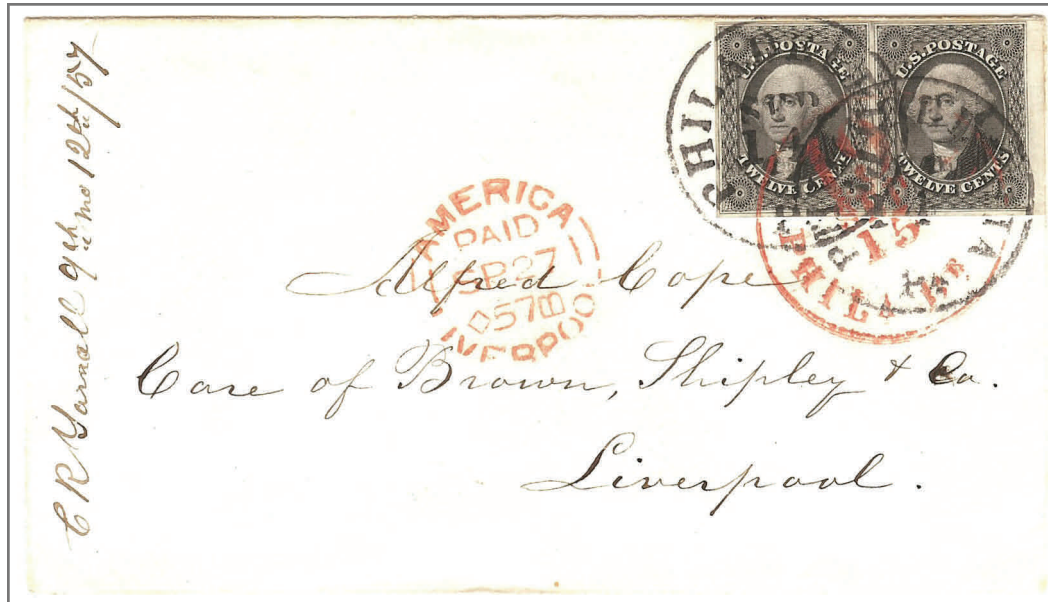 C R Yarnall 9th mo 12th/57
U.S. POSTAGE
TWELVE CENTS
U.S. POSTAGE
TWELVE CENTS
PHILA
15
AMERICA
PAID
SP 27
57
LIVERPOO
Alfred Cope
Care of Brown, Shipley & Co.
Liverpool.